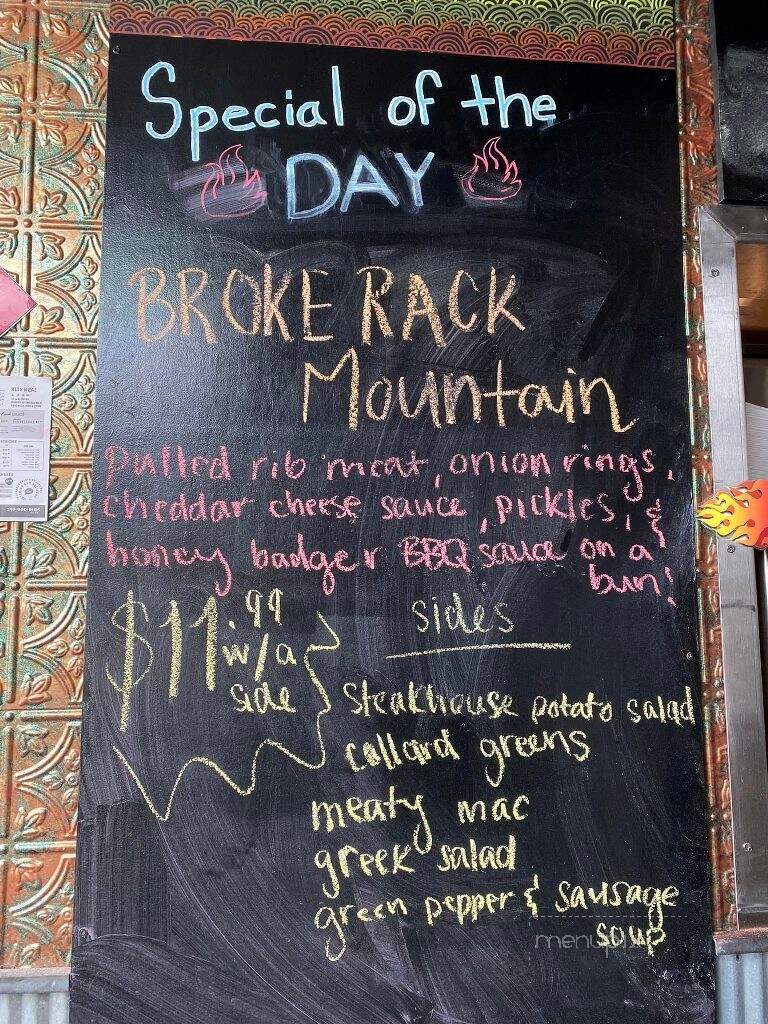 Special of the
DAY
BROKE RACK
Mountain
pulled rib meat, onion rings,
cheddar cheese sauce, pickles, &
honey badger BBQ sauce on a
bun!
$11.99
w/a
side
sides
steakhouse potato salad
collard greens
meaty mac
greek salad
green pepper & sausage
soup